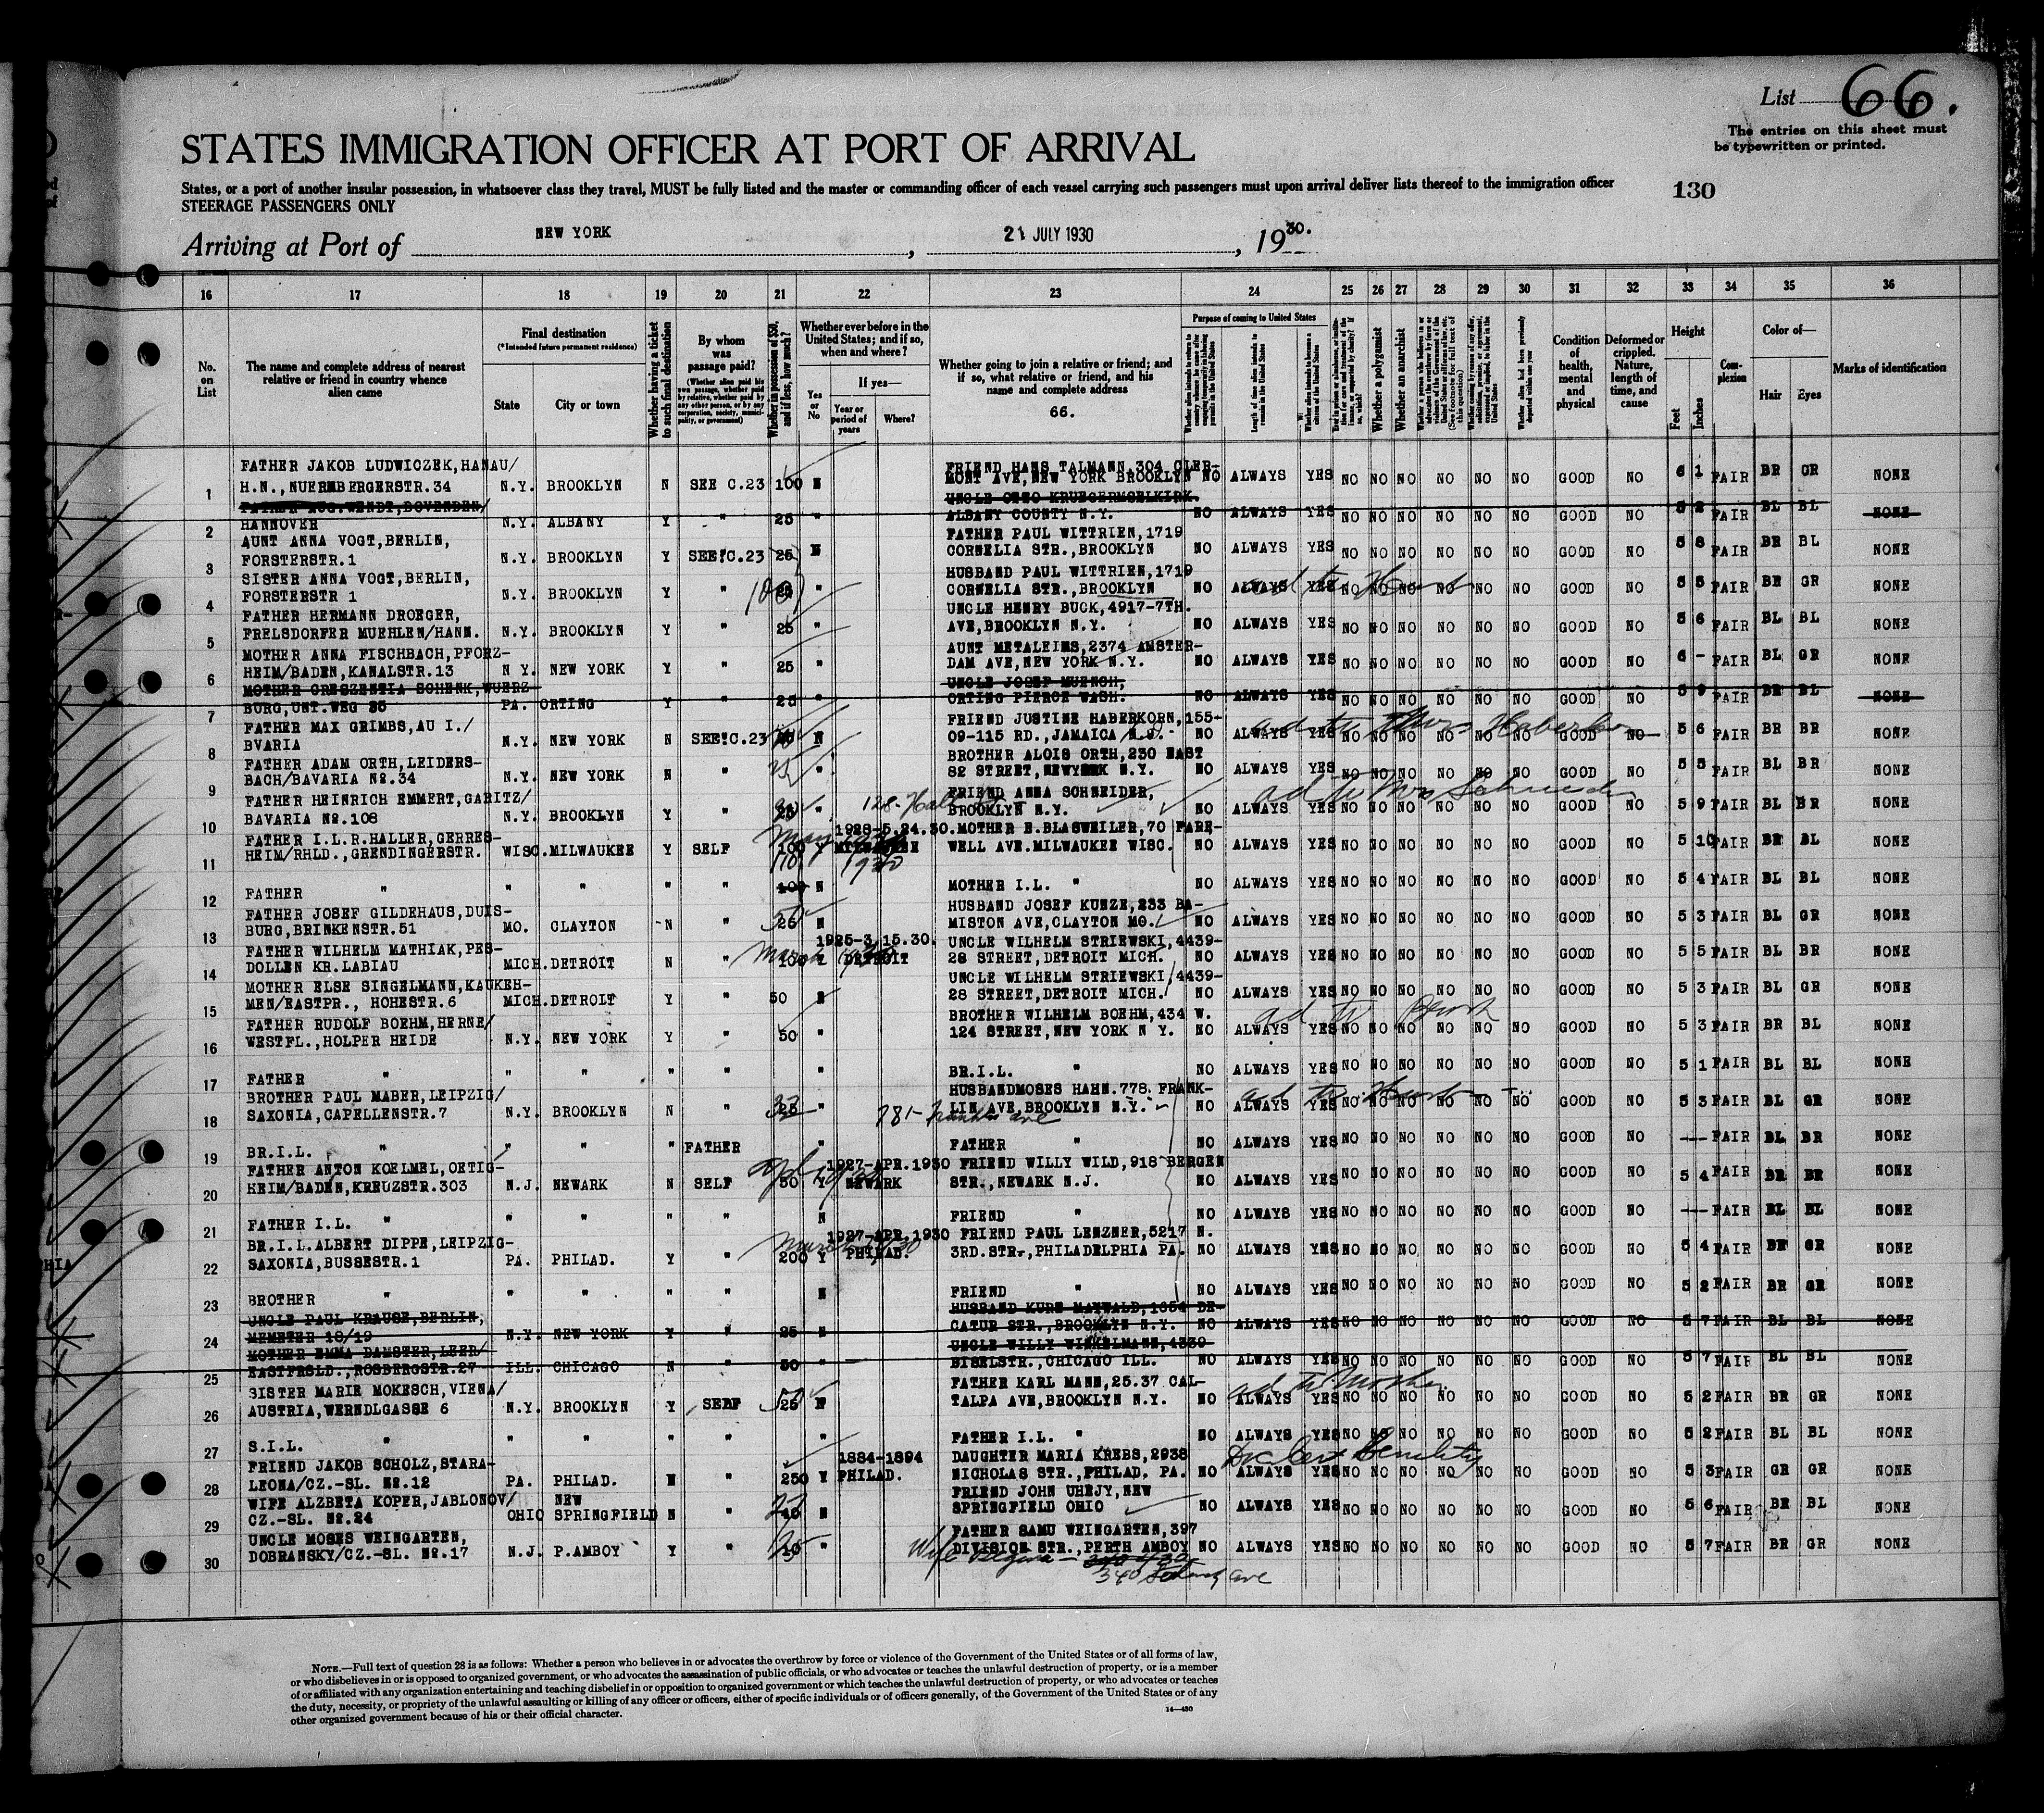 List 66.
The entries on this sheet must
be typewritten or printed.
STATES IMMIGRATION OFFICER AT PORT OF ARRIVAL
States, or a port of another insular possession, in whatsoever class they travel, MUST be fully listed and the master or commanding officer of each vessel carrying such passengers must upon arrival deliver lists thereof to the immigration officer
STEERAGE PASSENGERS ONLY
130
Arriving at Port of NEW YORK, 21 JULY 1930, 1930.
16 17 18 19 20 21 22 23 24 25 26 27 28 29 30 31 32 33 34 35 36
No. on List
The name and complete address of nearest relative or friend in country whence alien came
Final destination
(*Intended future permanent residence)
State
City or town
Whether having a ticket to such final destination
By whom was passage paid?
(Whether alien paid his own passage, whether paid by relative, whether paid by any other person, or by any corporation, society, municipality, or government)
Whether in possession of $50, and if less, how much?
Whether ever before in the United States; and if so, when and where?
Yes or No
If yes—
Year or period of years
Where?
Whether going to join a relative or friend; and if so, what relative or friend, and his name and complete address
66.
Purpose of coming to United States
Length of time alien intends to remain in the United States
Whether alien intends to become a citizen of the United States
Whether a polygamist
Whether an anarchist
Condition of health, mental and physical
Deformed or crippled. Nature, length of time, and cause
Height
Feet
Inches
Complexion
Color of—
Hair
Eyes
Marks of identification
1 FATHER JAKOB LUDWICZEK,HANAU/ H.N.,NUERNBERGERSTR.34 N.Y. BROOKLYN N SEE C.23 100 N FRIEND HANS TALMANN,304 CLER- MONT AVE,NEW YORK BROOKLYN NO ALWAYS YES NO NO NO NO NO NO GOOD NO 6 1 FAIR BR GR NONE
2 FATHER AUG.WENDT,BOVENDEN/ HANNOVER N.Y. ALBANY Y " 25 " UNCLE OTTO KRUEGERMSELKIRK. ALBANY COUNTY N.Y. NO ALWAYS YES NO NO NO NO NO NO GOOD NO 5 2 FAIR BL BL NONE
3 AUNT ANNA VOGT,BERLIN, FORSTERSTR.1 N.Y. BROOKLYN Y SEE C.23 25 N FATHER PAUL WITTRIEN,1719 CORNELIA STR.,BROOKLYN NO ALWAYS YES NO NO NO NO NO NO GOOD NO 5 8 FAIR BR BL NONE
4 SISTER ANNA VOGT,BERLIN, FORSTERSTR 1 N.Y. BROOKLYN Y " 25 100 " HUSBAND PAUL WITTRIEN,1719 CORNELIA STR.,BROOKLYN NO ALWAYS YES NO NO NO NO NO NO GOOD NO 5 5 FAIR BR GR NONE
5 FATHER HERMANN DROEGER, FRELSDORFER MUEHLEN/HANN. N.Y. BROOKLYN Y " 25 " UNCLE HENRY BUCK,4917-7TH. AVE,BROOKLYN N.Y. NO ALWAYS YES NO NO NO NO NO NO GOOD NO 5 6 FAIR BL BL NONE
6 MOTHER ANNA FISCHBACH,PFORZ- HEIM/BADEN,KANALSTR.13 N Y. NEW YORK Y " 25 " AUNT METALEINS,2374 AMSTER- DAM AVE,NEW YORK N.Y. NO ALWAYS YES NO NO NO NO NO NO GOOD NO 6 - FAIR BL GR NONE
7 MOTHER CRESZENTIA SCHENK,WUERZ- BURG,UNT.WEG 35 PA. ORTING Y " 25 " UNCLE JOSEF MUENCH, ORTING PIERCE WASH. NO ALWAYS YES NO NO NO NO NO NO GOOD NO 5 9 FAIR BR BL NONE
8 FATHER MAX GRIMBS,AU I./ BVARIA N.Y. NEW YORK N SEE C.23 N FRIEND JUSTINE HABERKORN,155- 09-115 RD.,JAMAICA N.J. NO ALWAYS YES NO NO NO NO NO NO GOOD NO 5 6 FAIR BR BR NONE
9 FATHER ADAM ORTH,LEIDERS- BACH/BAVARIA No.34 N.Y. NEW YORK N " " BROTHER ALOIS ORTH,230 EAST 82 STREET,NEWYORK N.Y. NO ALWAYS YES NO NO NO NO NO NO GOOD NO 5 5 FAIR BL BR NONE
10 FATHER HEINRICH EMMERT,GARITZ/ BAVARIA No.108 N.Y. BROOKLYN Y " 25 " FRIEND ANNA SCHNEIDER, BROOKLYN N.Y. NO ALWAYS YES NO NO NO NO NO NO GOOD NO 5 9 FAIR BL BR NONE
11 FATHER I.L.R.HALLER,GERRES- HEIM/RHLD.,GRENDINGERSTR. WISC.MILWAUKEE Y SELF 100 Y 1928-5.24.30. MILWAUKEE MOTHER E.BLASWEILER,70 FARE- WELL AVE.MILWAUKEE WISC. NO ALWAYS YES NO NO NO NO NO NO GOOD NO 5 10 FAIR BR BL NONE
12 FATHER " " " " " 100 N MOTHER I.L. " NO ALWAYS YES NO NO NO NO NO NO GOOD NO 5 4 FAIR BL BL NONE
13 FATHER JOSEF GILDEHAUS,DUIS- BURG,BRINKENSTR.51 MO. CLAYTON N " 25 50 N HUSBAND JOSEF KUNZE,233 BA- MISTON AVE,CLAYTON MO. NO ALWAYS YES NO NO NO NO NO NO GOOD NO 5 3 FAIR BL GR NONE
14 FATHER WILHELM MATHIAK,PES- DOLLEN KR.LABIAU MICH.DETROIT N " 100 Y 1925-3.15.30. DETROIT UNCLE WILHELM STRIEWSKI,4439- 28 STREET,DETROIT MICH. NO ALWAYS YES NO NO NO NO NO NO GOOD NO 5 5 FAIR BL BR NONE
15 MOTHER ELSE SINGELMANN,KAUKEH- MEN/EASTPR., HOHESTR.6 MICH.DETROIT Y " 50 N UNCLE WILHELM STRIEWSKI,4439- 28 STREET,DETROIT MICH. NO ALWAYS YES NO NO NO NO NO NO GOOD NO 5 3 FAIR BL GR NONE
16 FATHER RUDOLF BOEHM,HERNE/ WESTFL.,HOLPER HEIDE N.Y. NEW YORK Y " 50 " BROTHER WILHELM BOEHM,434 W. 124 STREET,NEW YORK N Y. NO ALWAYS YES NO NO NO NO NO NO GOOD NO 5 3 FAIR BR BL NONE
17 FATHER " " " " " " BR.I.L. " NO ALWAYS YES NO NO NO NO NO NO GOOD NO 5 1 FAIR BL BL NONE
18 BROTHER PAUL MABER,LEIPZIG/ SAXONIA,CAPELLENSTR.7 N.Y. BROOKLYN N " 25 " HUSBANDMOSES HAHN.778. FRANK- LIN AVE,BROOKLYN N.Y. 781- Franklin ave NO ALWAYS YES NO NO NO NO NO NO GOOD NO 5 3 FAIR BL GR NONE
19 BR.I.L. " " " " FATHER " FATHER " NO ALWAYS YES NO NO NO NO NO NO GOOD NO -- FAIR BL BR NONE
20 FATHER ANTON KOELMEL,OETIG- HEIM/BADEN,KREUZSTR.303 N.J. NEWARK N SELF 50 Y 1927-APR.1930 NEWARK FRIEND WILLY WILD,918 BERGEN STR.,NEWARK N.J. NO ALWAYS YES NO NO NO NO NO NO GOOD NO 5 4 FAIR BR BR NONE
21 FATHER I.L. " " " " " N FRIEND " NO ALWAYS YES NO NO NO NO NO NO GOOD NO -- FAIR BL BL NONE
22 BR.I.L.ALBERT DIPPE,LEIPZIG- SAXONIA,BUSSESTR.1 PA. PHILAD. Y " 200 Y 1927-APR.1930 PHILAD. FRIEND PAUL LENZNER,5217 N. 3RD.STR.,PHILADELPHIA PA. NO ALWAYS YES NO NO NO NO NO NO GOOD NO 5 4 FAIR BR GR NONE
23 BROTHER " " " " " N FRIEND " NO ALWAYS YES NO NO NO NO NO NO GOOD NO 5 2 FAIR BR GR NONE
24 UNCLE PAUL KRAUSE,BERLIN, MEMETER 18/19 N.Y. NEW YORK Y " 25 N HUSBAND KURT MAYWALD,1654 DE- CATUR STR.,BROOKLYN N.Y. NO ALWAYS YES NO NO NO NO NO NO GOOD NO 5 7 FAIR BL BL NONE
25 MOTHER EMMA DAMSTER,LEER/ EASTFRSLD.,ROSBERGSTR.27 ILL. CHICAGO N " 50 " UNCLE WILLY WINKELMANN,4339 BISELSTR.,CHICAGO ILL. NO ALWAYS YES NO NO NO NO NO NO GOOD NO 5 7 FAIR BL BL NONE
26 SISTER MARIE MOKESCH,VIENA/ AUSTRIA,WERNDLGASSE 6 N.Y. BROOKLYN Y SELF 25 50 N FATHER KARL MANN,25.37 CAL- TALPA AVE,BROOKLYN N.Y. NO ALWAYS YES NO NO NO NO NO NO GOOD NO 5 2 FAIR BR GR NONE
27 S.I.L. " " " " " " " FATHER I.L. " NO ALWAYS YES NO NO NO NO NO NO GOOD NO 5 2 FAIR BL BL NONE
28 FRIEND JAKOB SCHOLZ,STARA- LEONA/CZ.-SL. No.12 PA. PHILAD. N " 250 Y 1884-1894 PHILAD. DAUGHTER MARIA KREBS,2938 NICHOLAS STR.,PHILAD. PA. NO ALWAYS YES NO NO NO NO NO NO GOOD NO 5 3 FAIR GR GR NONE
29 WIFE ALZBETA KOPER,JABLONOV/ CZ.-SL. No.24 OHIO NEW SPRINGFIELD N " 10 N FRIEND JOHN UHEJY,NEW SPRINGFIELD OHIO NO ALWAYS YES NO NO NO NO NO NO GOOD NO 5 6 FAIR BR BL NONE
30 UNCLE MOSES WEINGARTEN, DOBRANSKY/CZ.-SL. No.17 N.J. P.AMBOY Y " 10 " FATHER SAMU WEINGARTEN,397 DIVISION STR.,PERTH AMBOY NO ALWAYS YES NO NO NO NO NO NO GOOD NO 5 7 FAIR BR GR NONE
NOTE.—Full text of question 28 is as follows: Whether a person who believes in or advocates the overthrow by force or violence of the Government of the United States or of all forms of law,
or who disbelieves in or is opposed to organized government, or who advocates the assassination of public officials, or who advocates or teaches the unlawful destruction of property, or is a member
of or affiliated with any organization entertaining and teaching disbelief in or opposition to organized government or which teaches the unlawful destruction of property, or who advocates or teaches
the duty, necessity, or propriety of the unlawful assaulting or killing of any officer or officers, either of specific individuals or of officers generally, of the Government of the United States or of any
other organized government because of his or their official character.
14—430